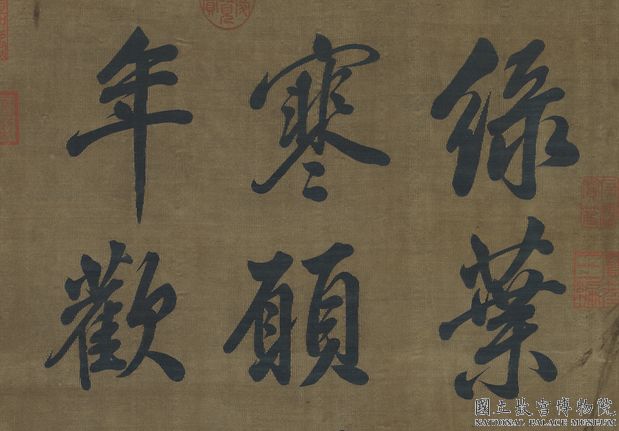 綠葉
寒願
年歡
國立故宮博物院
NATIONAL PALACE MUSEUM